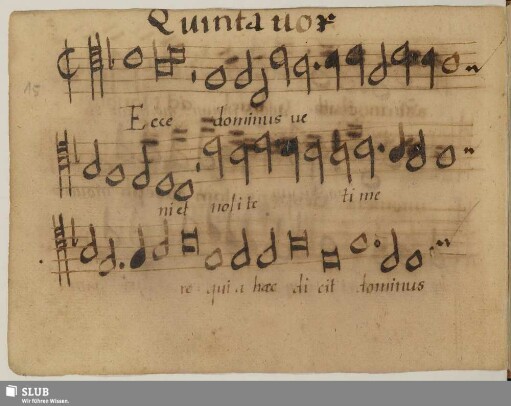 Quinta vox
15
Ecce dominus ue
ni et nolite time
re quia haec dicit dominus
SLUB
Wir führen Wissen.